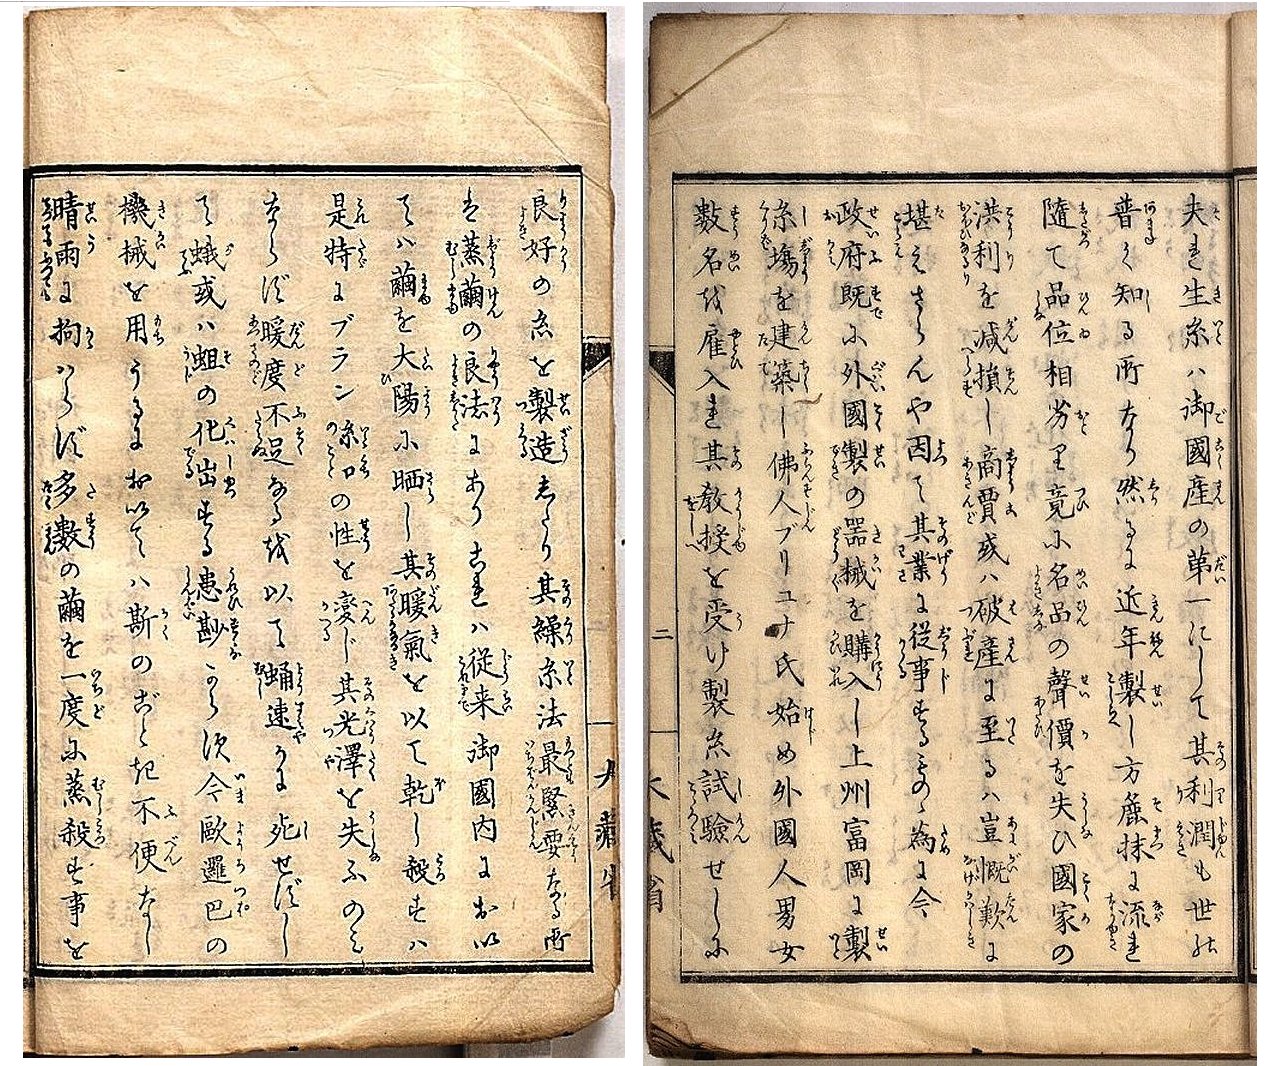 夫れ生糸ハ御國産の第一にして其利潤も世の
普く知る所なり然るに近年製し方麁抹に流れ
随て品位相劣り竟に名品の聲價を失ひ國家の
洪利を減損し商賈或ハ破産に至るハ豈慨歎に
堪えさらんや因て其業に従事するものゝ為に今
政府既に外國製の器械を購入し上州富岡に製
糸塲を建築し佛人ブリユナ氏始め外國人男女
數名を雇入れ其教授を受け製糸試驗せしに
二
大藏省
良好の糸を製造したり其繰糸法最緊要なる所
は蒸繭の良法にあり之れハ従来御國内におゐ
てハ繭を大陽に晒し其暖氣を以て乾し殺すハ
是特にブラン糸口の性を変じ其光澤を失ふのミ
ならず暖度不足なるを以て蛹速かに死せずし
て蛾或ハ蛆の化出する患尠からず今歐邏巴の
機械を用うるにおゐてハ斯のごとき不便なし
晴雨に拘ハらず多數の繭を一度に蒸殺す事を
大藏省